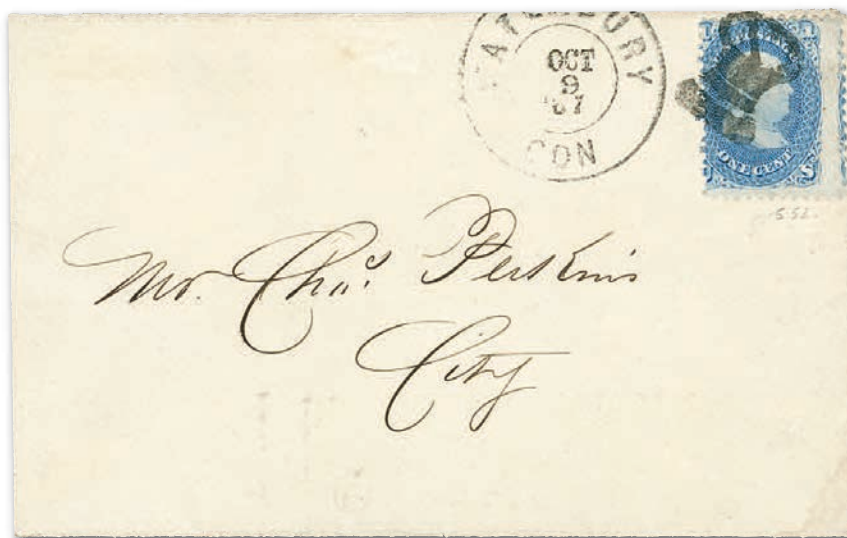 WATERBURY
OCT
9
'67
CON
ONE CENT
S
5.52.
Mr. Chas. Perkins
City